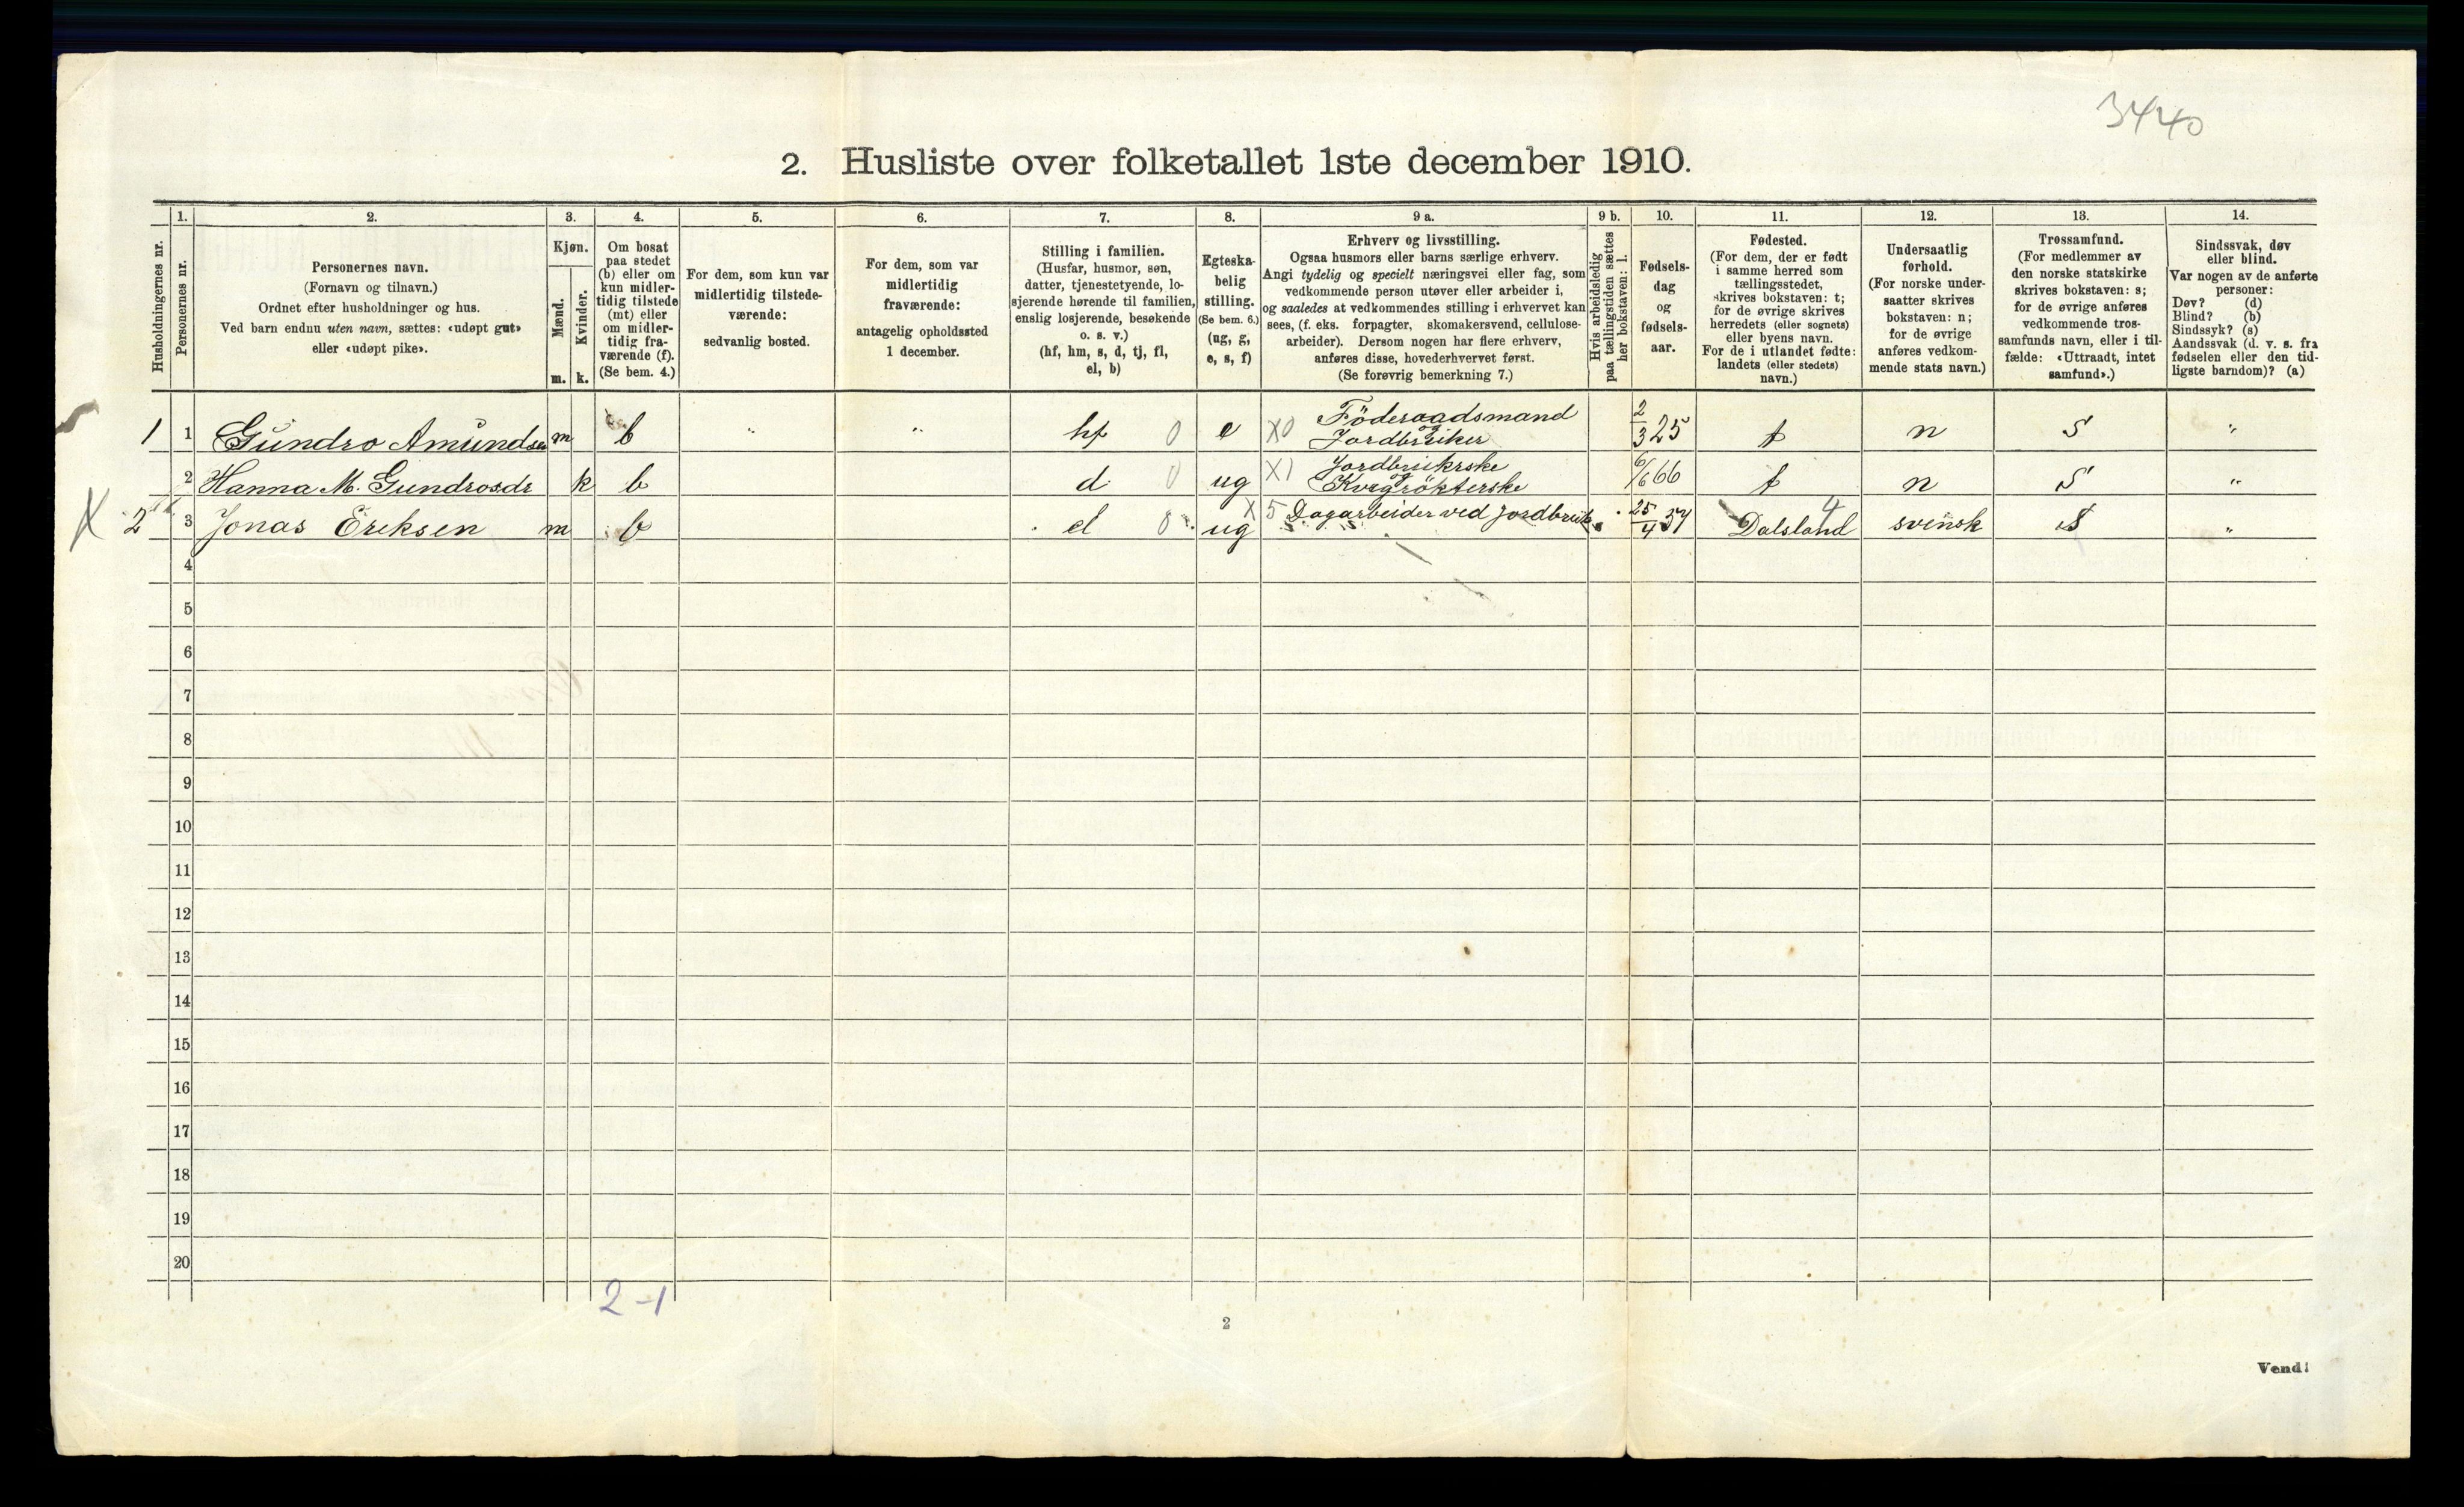 3440
2. Husliste over folketallet 1ste december 1910.
1. 2. 3. 4. 5. 6. 7. 8. 9 a. 9 b. 10. 11. 12. 13. 14.
Husholdningernes nr.
Personernes nr.
Personernes navn.
(Fornavn og tilnavn.)
Ordnet efter husholdninger og hus.
Ved barn endnu uten navn, sættes: «udøpt gut»
eller «udøpt pike».
Kjøn.
Mænd.
Kvinder.
m. k.
Om bosat
paa stedet
(b) eller om
kun midler-
tidig tilstede
(mt) eller
om midler-
tidig fra-
værende (f).
(Se bem. 4.)
For dem, som kun var
midlertidig tilstede-
værende:
sedvanlig bosted.
For dem, som var
midlertidig
fraværende:
antagelig opholdssted
1 december.
Stilling i familien.
(Husfar, husmor, søn,
datter, tjenestetyende, lo-
sjerende hørende til familien,
enslig losjerende, besøkende
o. s. v.)
(hf, hm, s, d, tj, fl,
el, b)
Egteska-
belig
stilling.
(Se bem. 6.)
(ug, g,
e, s, f)
Erhverv og livsstilling.
Ogsaa husmors eller barns særlige erhverv.
Angi tydelig og specielt næringsvei eller fag, som
vedkommende person utøver eller arbeider i,
og saaledes at vedkommendes stilling i erhvervet kan
sees, (f. eks. forpagter, skomakersvend, cellulose-
arbeider). Dersom nogen har flere erhverv,
anføres disse, hovederhvervet først.
(Se forøvrig bemerkning 7.)
Hvis arbeidsledig
paa tællingstiden sættes
her bokstaven: l.
Fødsels-
dag
og
fødsels-
aar.
Fødested.
(For dem, der er født
i samme herred som
tællingsstedet,
skrives bokstaven: t;
for de øvrige skrives
herredets (eller sognets)
eller byens navn.
For de i utlandet fødte:
landets (eller stedets)
navn.)
Undersaatlig
forhold.
(For norske under-
saatter skrives
bokstaven: n;
for de øvrige
anføres vedkom-
mende stats navn.)
Trossamfund.
(For medlemmer av
den norske statskirke
skrives bokstaven: s;
for de øvrige anføres
vedkommende tros-
samfunds navn, eller i til-
fælde: «Uttraadt, intet
samfund».)
Sindssvak, døv
eller blind.
Var nogen av de anførte
personer:
Døv? (d)
Blind? (b)
Sindssyk? (s)
Aandssvak (d. v. s. fra
fødselen eller den tid-
ligste barndom)? (a)
1 1 Gundro Amundsen m b " " hf 0 e X0 Föderaadsmand og Jordbruker 2/3 25 t n S "
2 Hanna M. Gundrosdr k b d 0 ug X1 Jordbrukrske og Kvegrökterske 6/6 66 t n S "
X 2 3 Jonas Eriksen m b el 0 ug X 5 Dagarbeider ved Jordbruk 25/4 57 Dalsland 4 svensk S "
4
5
6
7
8
9
10
11
12
13
14
15
16
17
18
19
20
2-1
2
Vend!